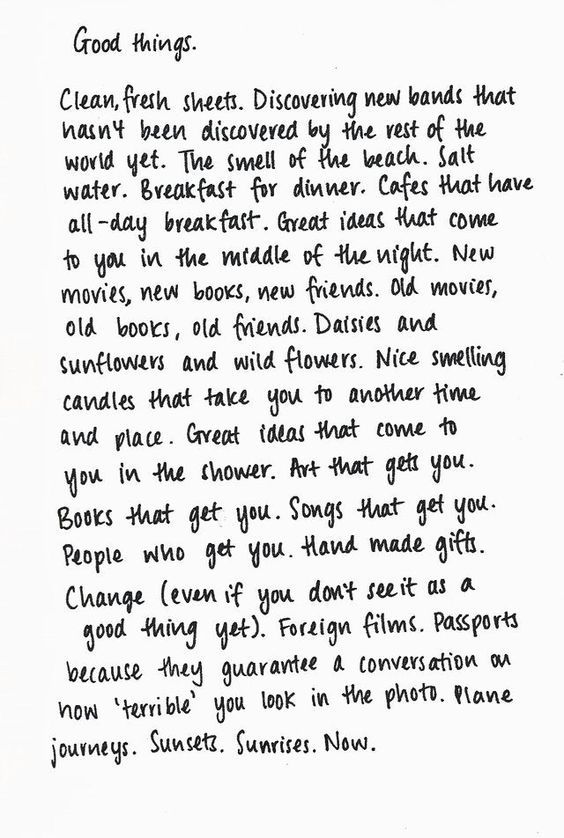 Good things.
Clean, fresh sheets. Discovering new bands that
hasn't been discovered by the rest of the
world yet. The smell of the beach. Salt
water. Breakfast for dinner. Cafes that have
all-day breakfast. Great ideas that come
to you in the middle of the night. New
movies, new books, new friends. Old movies,
old books, old friends. Daisies and
sunflowers and wild flowers. Nice smelling
candles that take you to another time
and place. Great ideas that come to
you in the shower. Art that gets you.
Books that get you. Songs that get you.
People who get you. Hand made gifts.
Change (even if you don't see it as a
good thing yet). Foreign films. Passports
because they guarantee a conversation on
how 'terrible' you look in the photo. Plane
journeys. Sunsets. Sunrises. Now.